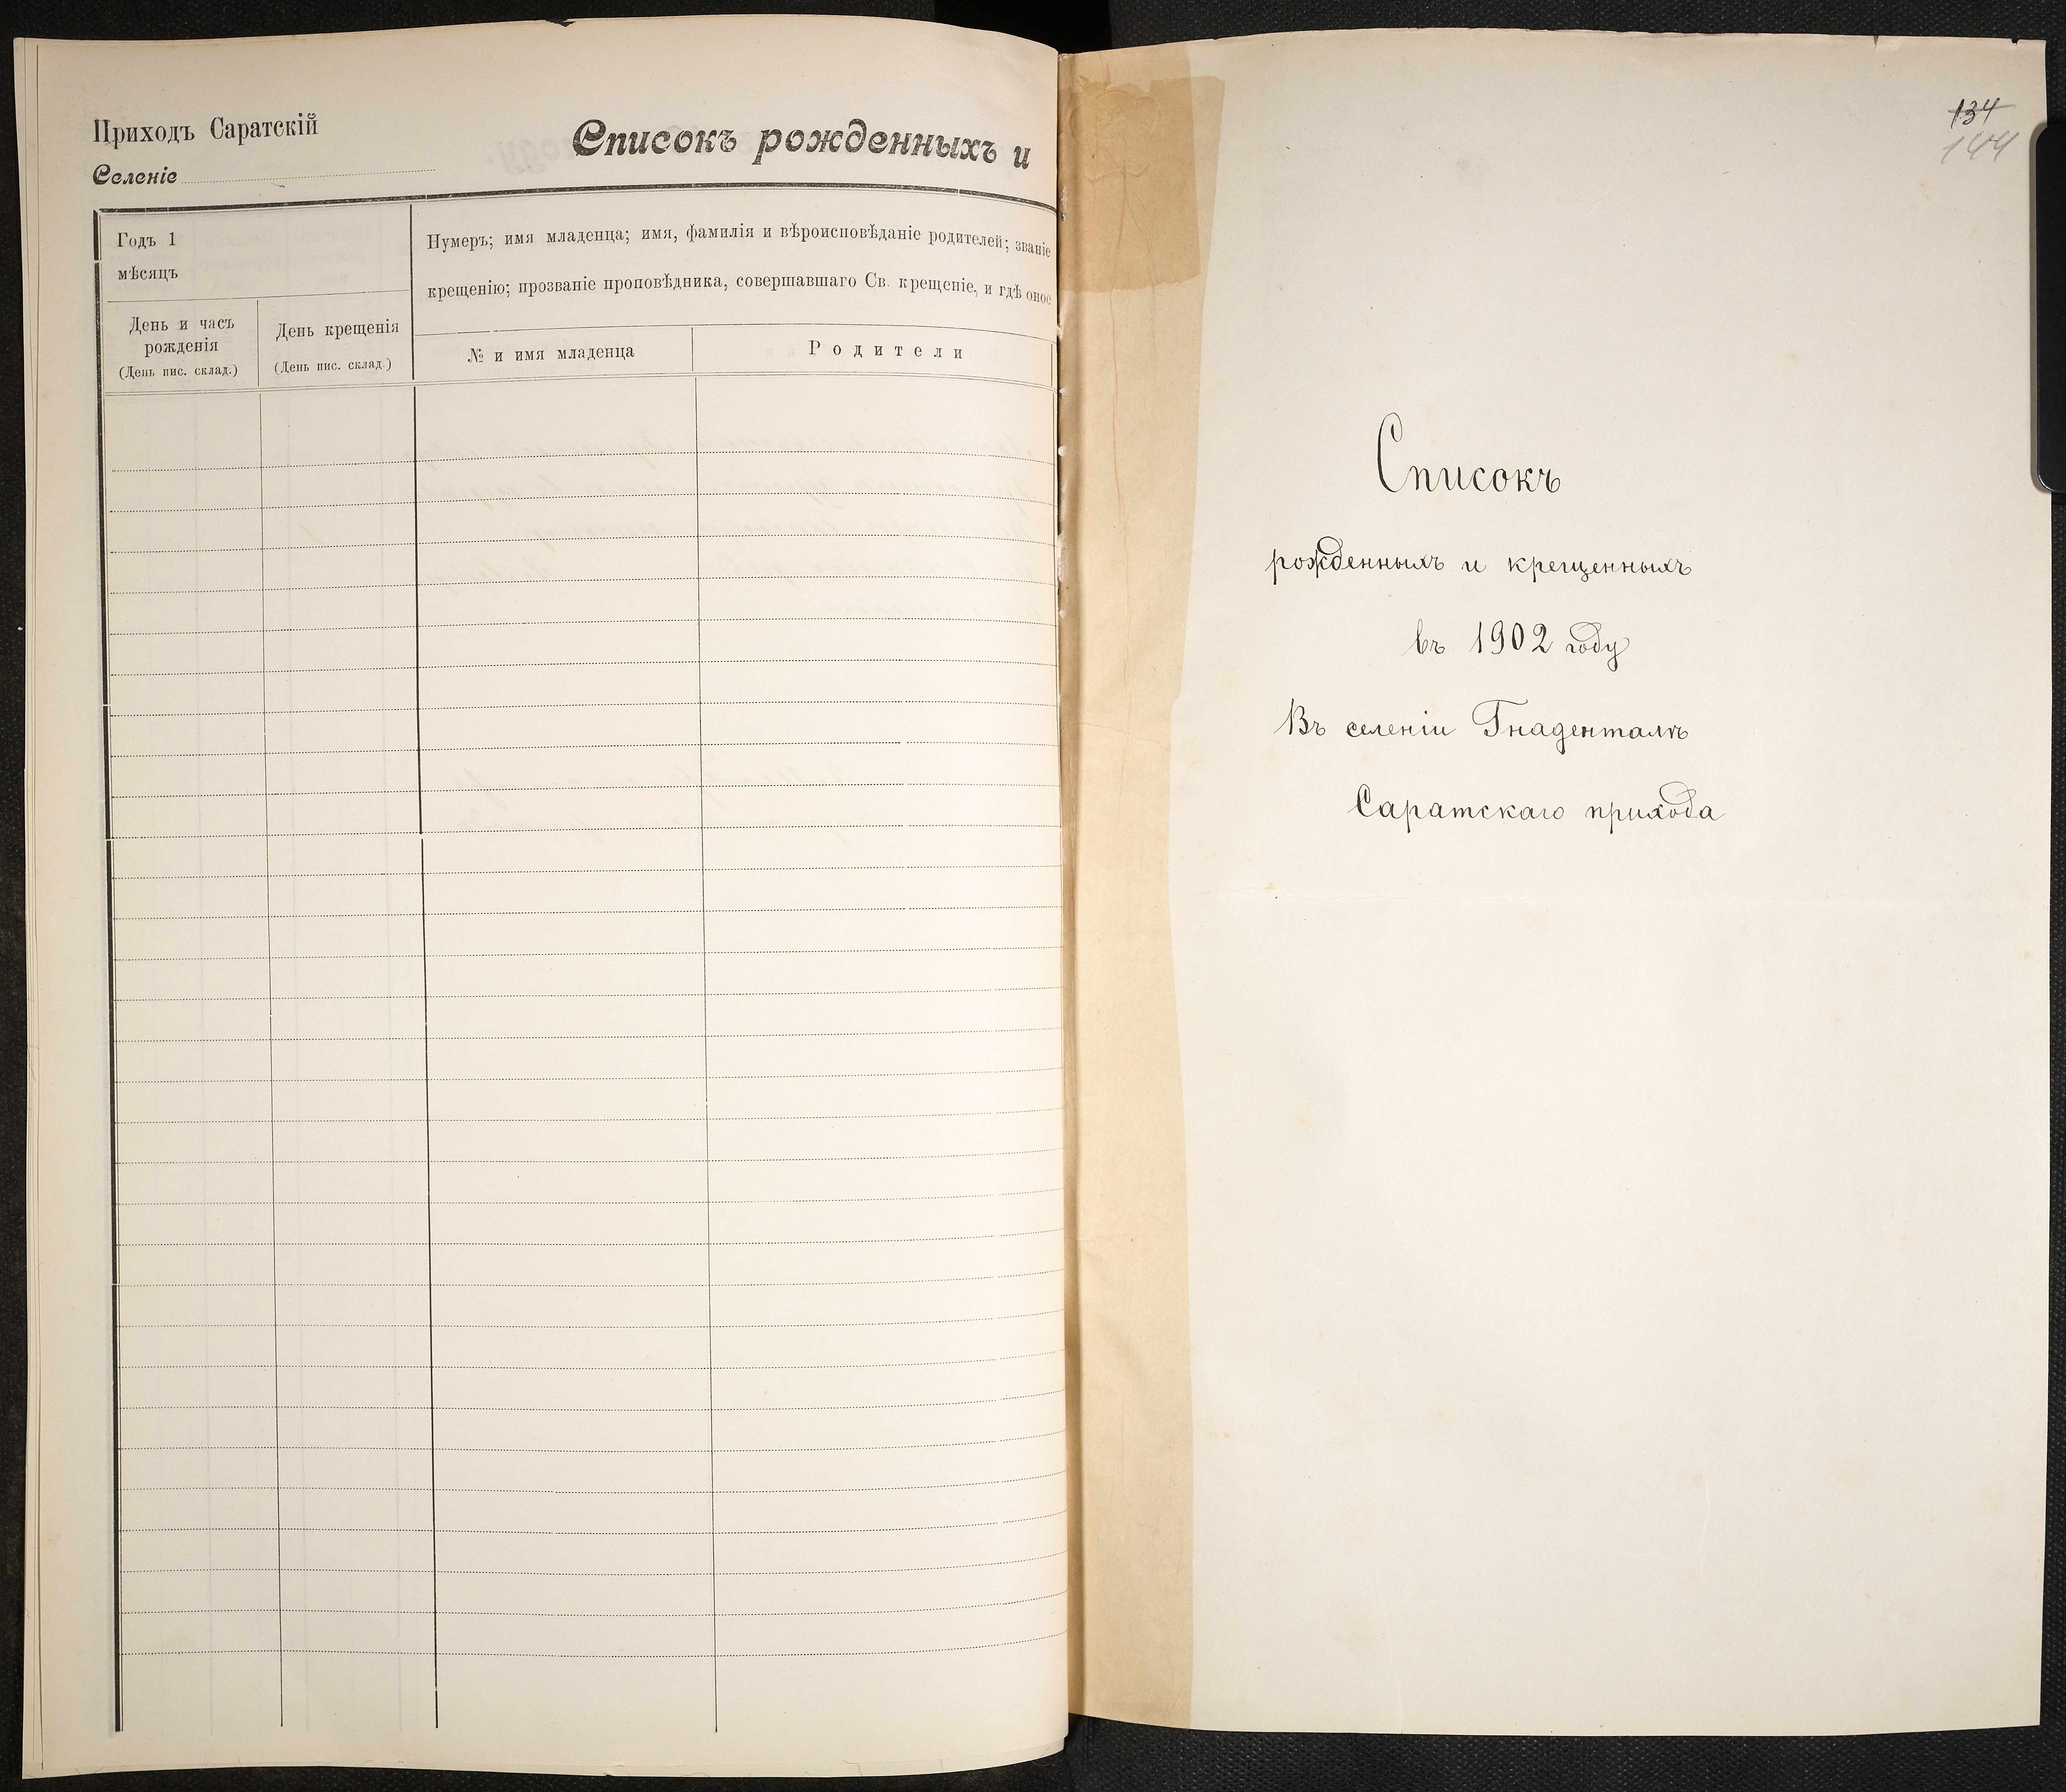 Приходъ Саратскій
Селеніе
Списокъ рожденныхъ и
Годъ 1
мѣсяцъ
Нумеръ; имя младенца; имя, фамилія и вѣроисповѣданіе родителей; званіе
крещенію; прозваніе проповѣдника, совершавшаго Св. крещеніе, и гдѣ оное
День и часъ
рожденія
(День пис. склад.)
День крещенія
(День пис. склад.)
№ и имя младенца
Родители
134
144
Списокъ
рожденныхъ и крещенныхъ
въ 1902 году
Въ селеніи Гнаденталь
Саратскаго прихода